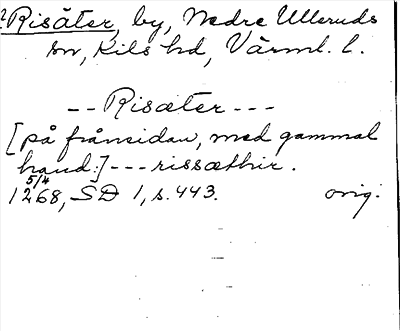 ?Risäter, by, Nedre Ulleruds
sn, Kils hd, Värml. l.
-- Risæter ---
[på frånsidan, med gammal
hand:] --- rissæthir.
5/4
1268, SD 1, s. 443. orig.